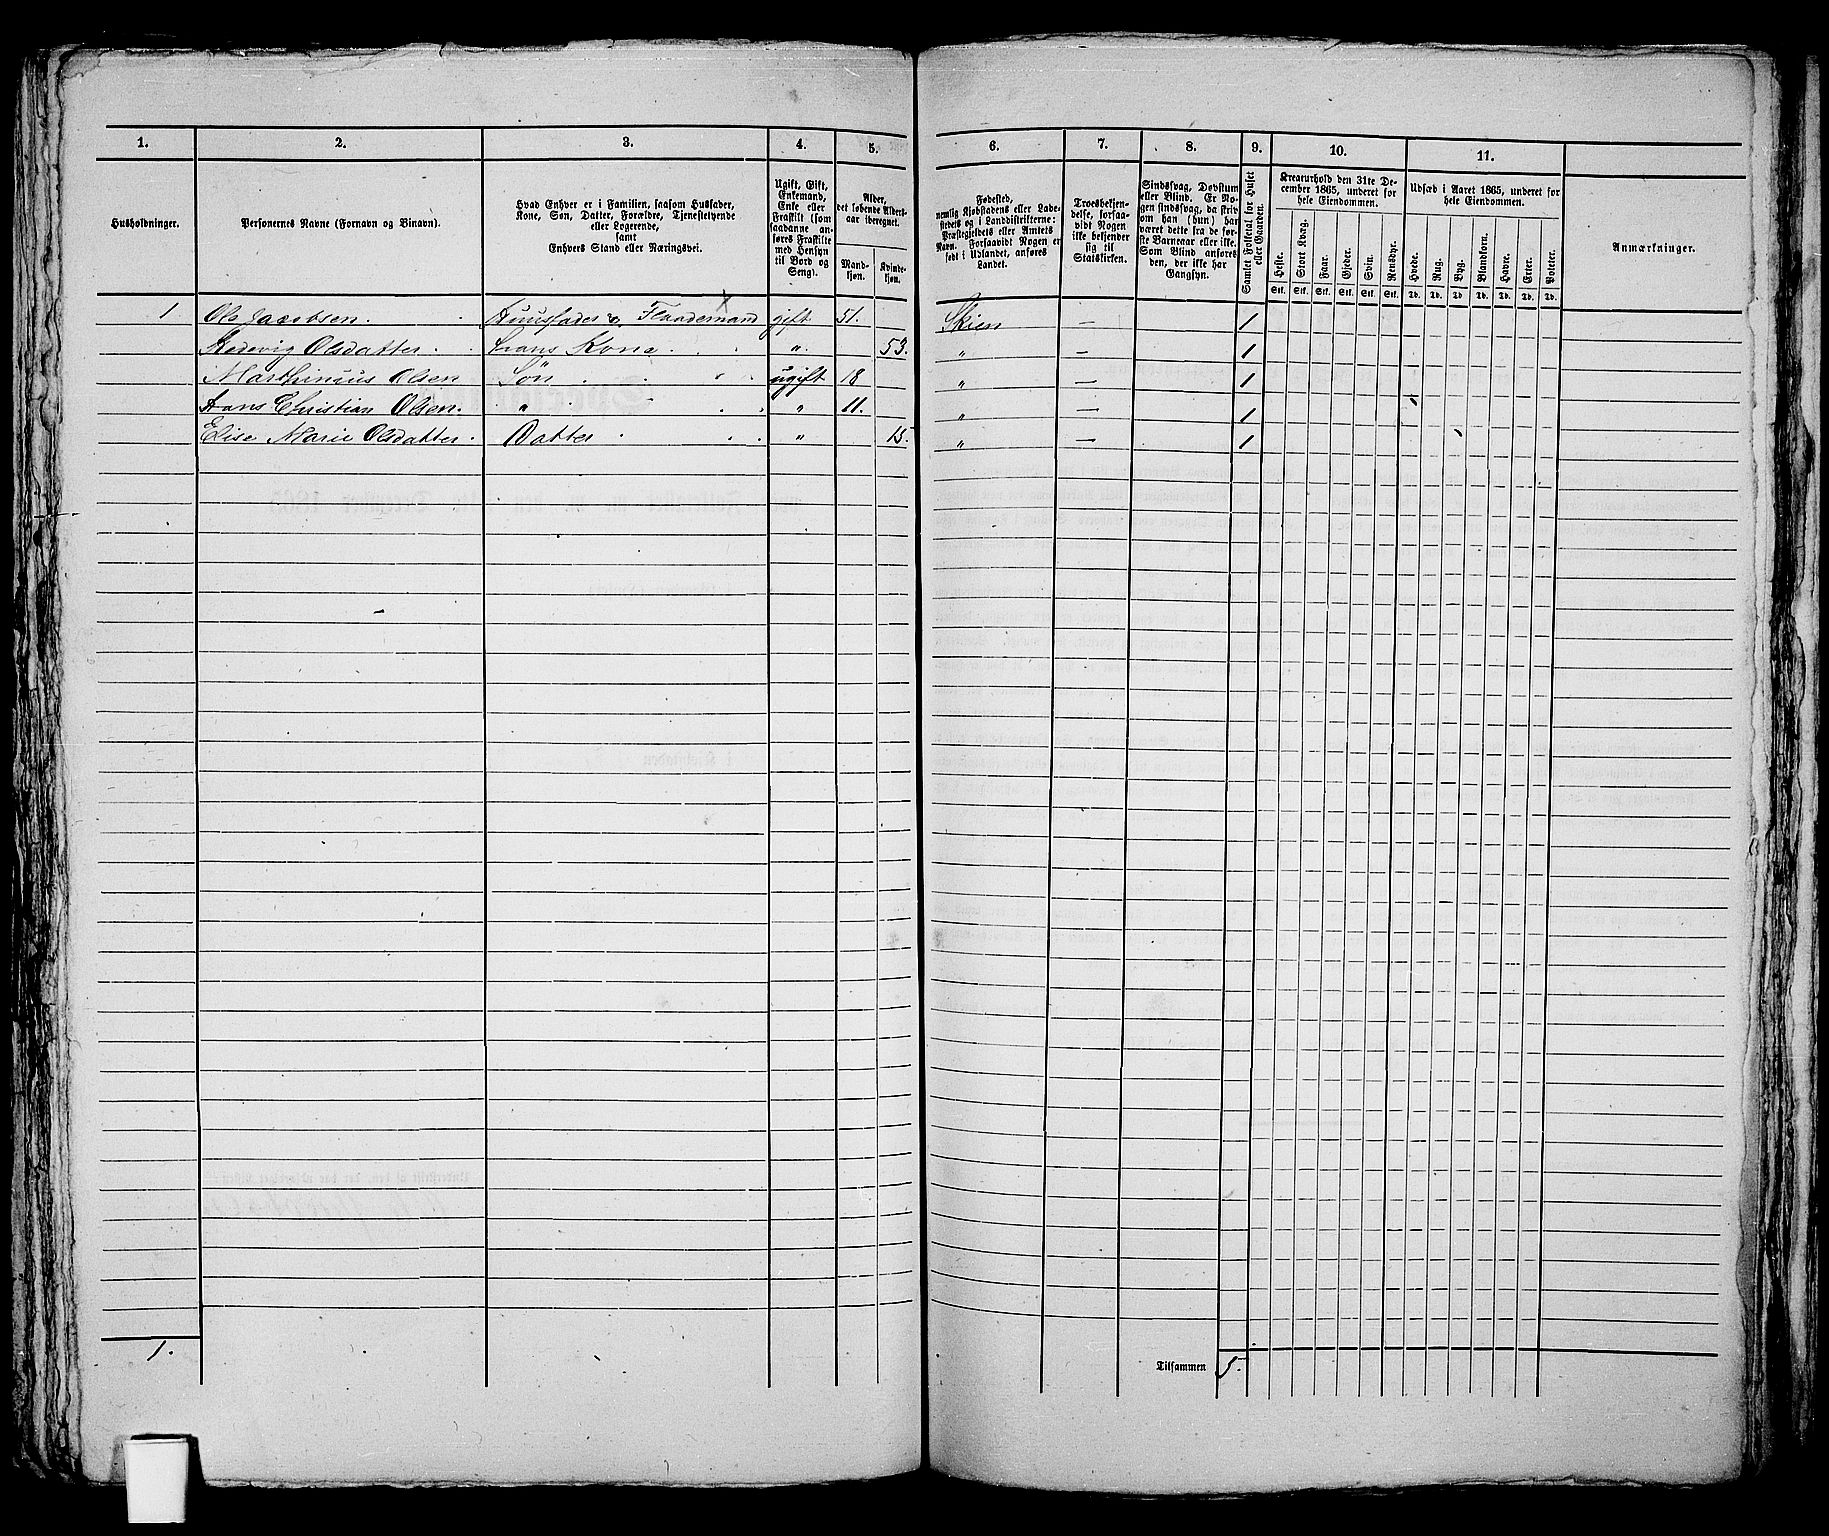 1. 2. 3. 4. 5. 6. 7. 8. 9. 10. 11.
Husholdninger.
Personernes Navne (Fornavn og Binavn).
Hvad Enhver er i Familien, saasom Husfader,
Kone, Søn, Datter, Forældre, Tjenestetyende
eller Logerende,
samt
Enhvers Stand eller Næringsvei.
Ugift, Gift,
Enkemand,
Enke eller
Fraskilt (som
saadanne an-
føres Fraskilte
med Hensyn
til Bord og
Seng).
Alder,
det løbende Alders-
aar iberegnet.
Mand-
kjøn.
Kvinde-
kjøn.
Fødested,
nemlig Kjøbstadens eller Lade-
stedets og i Landdistrikterne:
Præstegjeldets eller Amtets
Navn. Forsaavidt Nogen er
født i Udlandet, anføres
Landet.
Troesbekjen-
delse, forsaa-
vidt Nogen
ikke bekjender
sig til
Statskirken.
Sindssvag, Døvstum
eller Blind. Er No-
gen sindssvag, da skriv
om han (hun) har
været dette fra de før-
ste Barneaar eller ikke.
Som Blind anføres
den, der ikke har
Gangsyn.
Samlet Folketal for Huset
eller Gaarden.
Kreaturhold den 31te De-
cember 1865, underet for
hele Eiendommen.
Heste. Stort Kvæg. Faar. Gjeder. Svin. Rensdyr.
Stk. Stk. Stk. Stk. Stk. Stk.
Udsæd i Aaret 1865, underet for
hele Eiendommen.
Hvede. Rug. Byg. Blandkorn. Havre. Erter. Poteter.
Td. Td. Td. Td. Td. Td. Td.
Anmærkninger.
1 Ole Jacobsen. Huusfader & Flaademand gift 51. Skien — 1
Hedevig Olsdatter. hans Kone. " 53. " — 1
Marthinius Olsen Søn ugift 18 " — 1
Hans Christian Olsen. " " 11. " — 1
Elise Marie Olsdatter. Datter " 15. " — 1
1. Tilsammen 5.